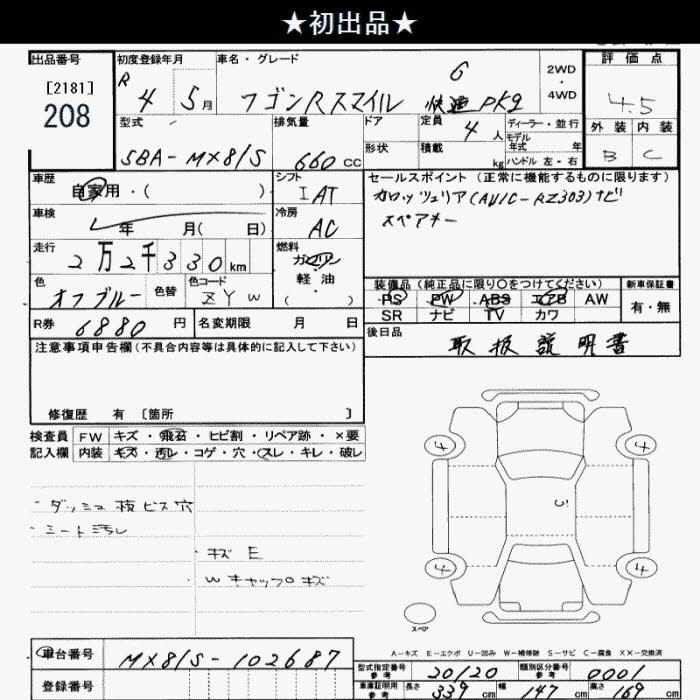 ★初出品★
出品番号
[2181]
208
初度登録年月
R 4 5月
車名・グレード
G
ワゴンRスマイル 快適PKg
2WD
・
4WD
評価点
4.5
外装 内装
B C
型式
5BA-MX81S
排気量
660 CC
ドア
形状
定員
4人
積載
kg
ディーラー・並行
モデル
年式 年
ハンドル 左・右
車歴
自家用・( )
シフト
IAT
車検
年 月( 日)
冷房
AC
走行
2万2千330km
燃料
ガソリン
軽・油
( )
色
オフブルー
色替
色コード
ZYW
R券 6880円
名変期限 月 日
セールスポイント(正常に機能するものに限ります)
カロッツェリア(AVIC-RZ303)ナビ
スペアキー
装備品(純正品に限り○をつけてください)
PS PW ABS エアB AW
SR ナビ TV カワ
新車保証書
有・無
後日品
取扱説明書
注意事項申告欄(不具合内容等は具体的に記入して下さい)
修復歴 有〔箇所 〕
検査員
記入欄
FW キズ・飛石・ヒビ割・リペア跡・×要
内装 キズ・汚レ・コゲ・穴・スレ・キレ・破レ
・ダッシュ板ビス穴
・シート汚レ
・キズ E
・Wキャップキズ
4 4
4 4
スペア
A-キズ E-エクボ U-凹み W-補修跡 S-サビ C-腐食 XX-交換済
車台番号 MX81S-102687
登録番号
型式指定番号
参考
20120
類別区分番号
参考
0001
車庫証明用
参考
長さ 339 cm 幅 147 cm 高さ 169 cm